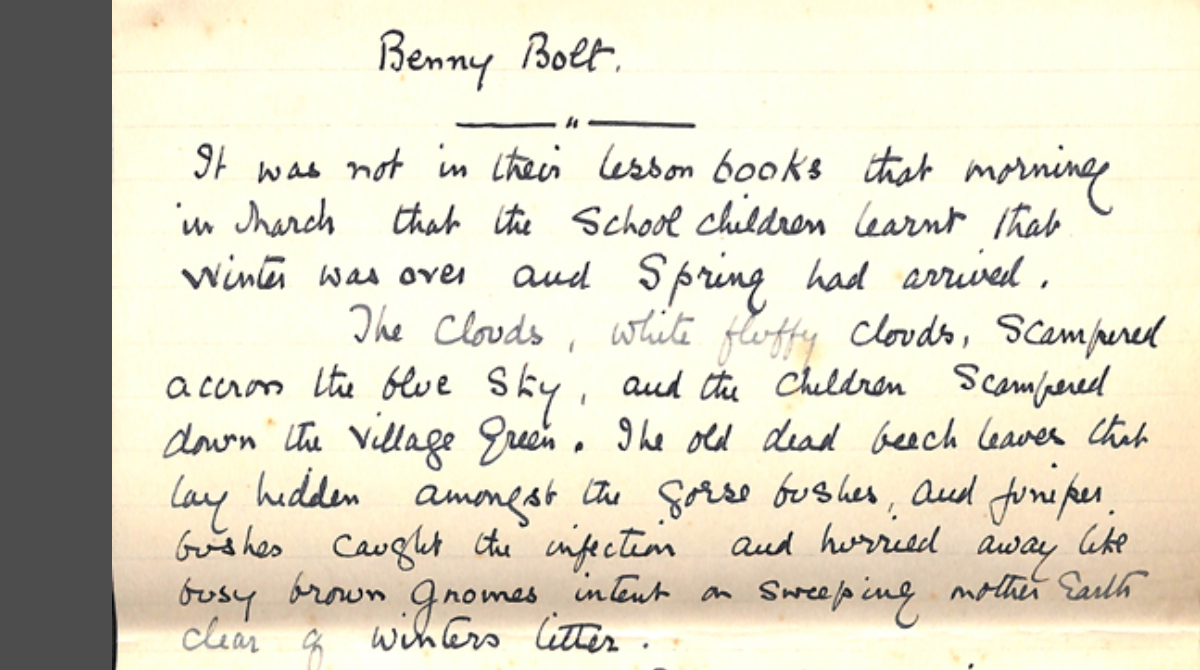 Benny Bolt.
It was not in their lesson books that morning
in March that the School children learnt that
Winter was over and Spring had arrived.
The Clouds, white fluffy clouds, Scampered
accross the blue Sky, and the children Scampered
down the Village Green. The old dead beech leaves that
lay hidden amongst the gorse bushes, and juniper
bushes caught the infection and hurried away like
busy brown Gnomes intent on sweeping mother Earth
clear of winters litter.